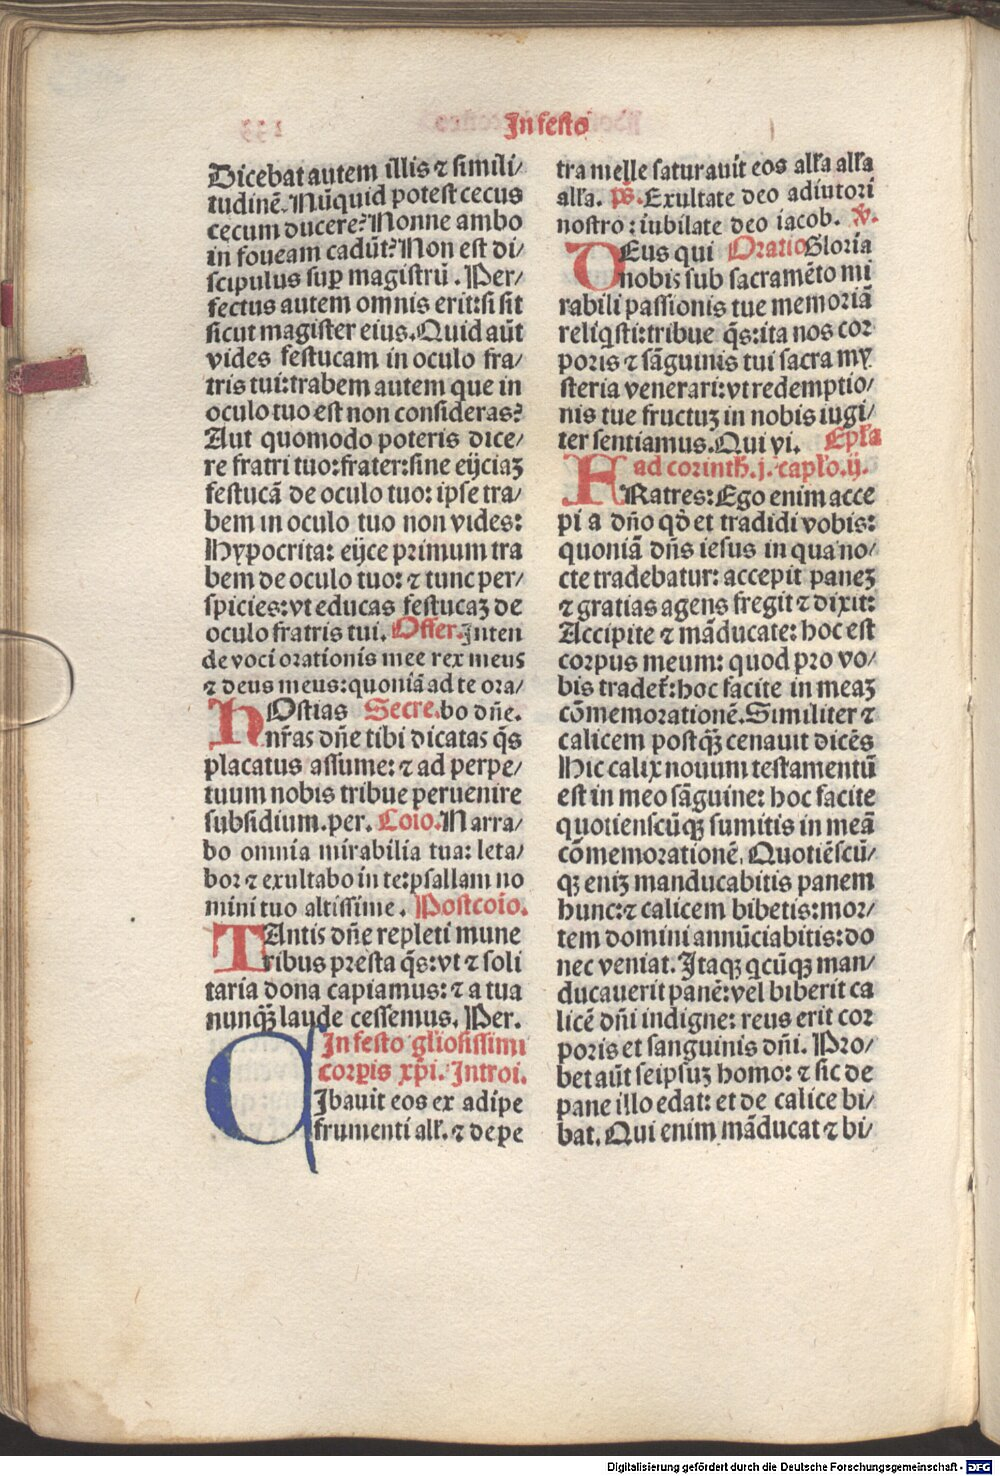 In festo
Dicebat autem illis ⁊ simili/
tudinē. Nūquid potest cecus
cecum ducere? Nonne ambo
in foueam cadūt? Non est di/
scipulus suꝑ magistrū. Per/
fectus autem omnis erit: si sit
sicut magister eius. Quid aūt
vides festucam in oculo fra/
tris tui: trabem autem que in
oculo tuo est non consideras?
Aut quomodo poteris dice/
re fratri tuo: frater: sine eijciaꝫ
festucā de oculo tuo: ipse tra/
bem in oculo tuo non vides:
Hypocrita: eijce primum tra
bem de oculo tuo: ⁊ tunc per/
spicies: vt educas festucaꝫ de
oculo fratris tui. Offer. Inten
de voci orationis mee rex meus
⁊ deus meus: quoniā ad te ora/
HOstias Secre. bo dñe.
nr̄as dñe tibi dicatas q̄s
placatus assume: ⁊ ad perpe/
tuum nobis tribue peruenire
subsidium. per. Coio. Narra/
bo omnia mirabilia tua: leta/
bor ⁊ exultabo in te: psallam no
mini tuo altissime. Postcoio.
TAntis dñe repleti mune
ribus presta q̄s: vt ⁊ soli
taria dona capiamus: ⁊ a tua
nunqꝫ̄ laude cessemus. Per.
In festo gl̄iosissimi
corꝑis xp̄i. Introi.
CIbauit eos ex adipe
frumenti all̄. ⁊ de pe
tra melle saturauit eos all̄a all̄a
all̄a. p̄s. Exultate deo adiutori
nostro: iubilate deo iacob. v̄.
DEus qui Oratio Gloria
nobis sub sacramēto mi
rabili passionis tue memoriā
reliq̇sti: tribue q̄s: ita nos cor
poris ⁊ sāguinis tui sacra my
steria venerari: vt redemptio/
nis tue fructuꝫ in nobis iugi/
ter sentiamus. Qui vi. Epl̄a
ad corinth̄. j. capl̄o. ij.
FRatres: Ego enim acce
pi a dño qđ et tradidi vobis:
quoniā dñs iesus in qua no/
cte tradebatur: accepit paneꝫ
⁊ gratias agens fregit ⁊ dixit:
Accipite ⁊ māducate: hoc est
corpus meum: quod pro vo/
bis tradet̄: hoc facite in meaꝫ
cōmemorationē. Similiter ⁊
calicem postqꝫ̄ cenauit dicēs
Hic calix nouum testamentū
est in meo sāguine: hoc facite
quotienscūqꝫ sumitis in meā
cōmemorationē. Quotiēscū/
qꝫ eniꝫ manducabitis panem
hunc: ⁊ calicem bibetis: mor/
tem domini annūciabitis: do
nec veniat. Itaqꝫ q̇cūqꝫ man/
ducauerit panē: vel biberit ca
licē dñi indigne: reus erit cor
poris et sanguinis dñi. Pro/
bet aūt seipsuꝫ homo: ⁊ sic de
pane illo edat: et de calice bi/
bat. Qui enim māducat ⁊ bi/
Digitalisierung gefördert durch die Deutsche Forschungsgemeinschaft - DFG